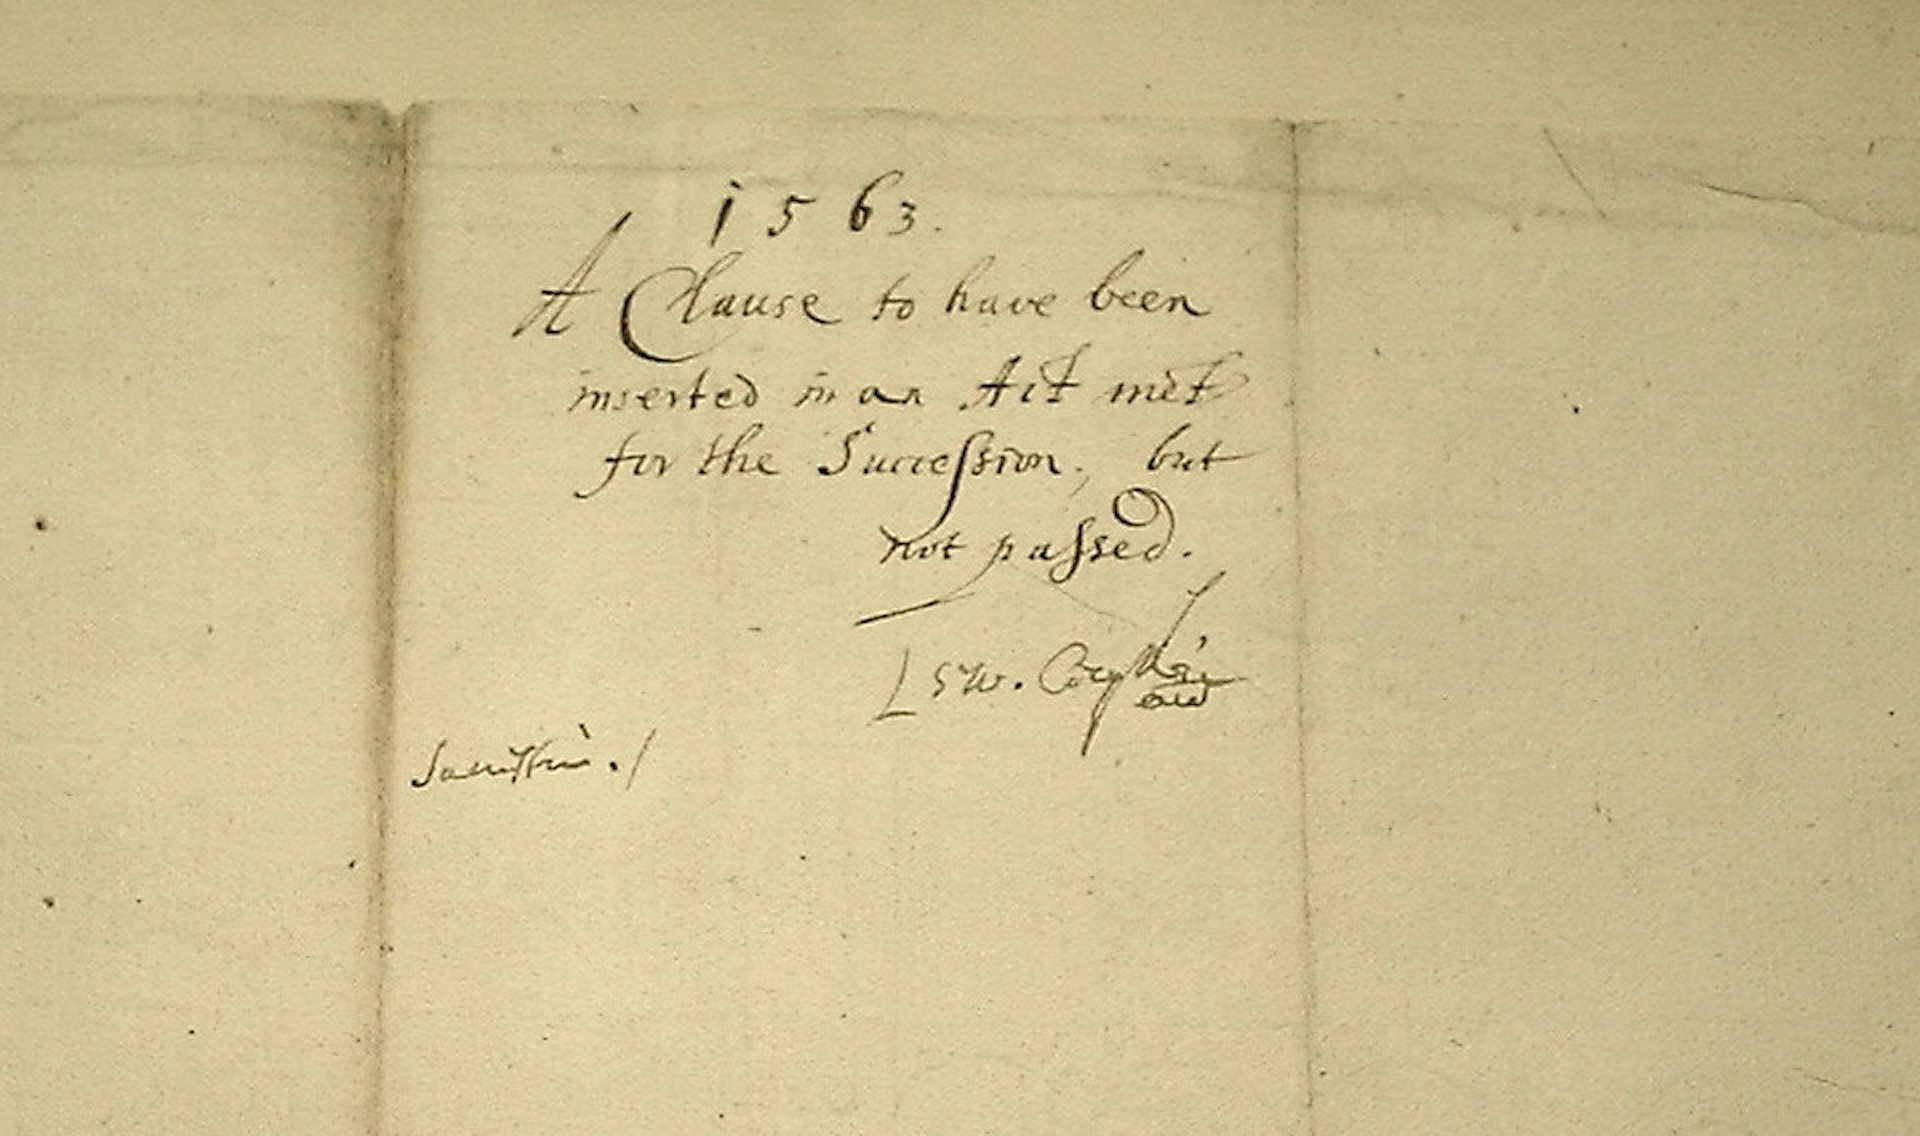 1563.
A Clause to have been
inserted in an Act met
for the Succession; but
not passed.